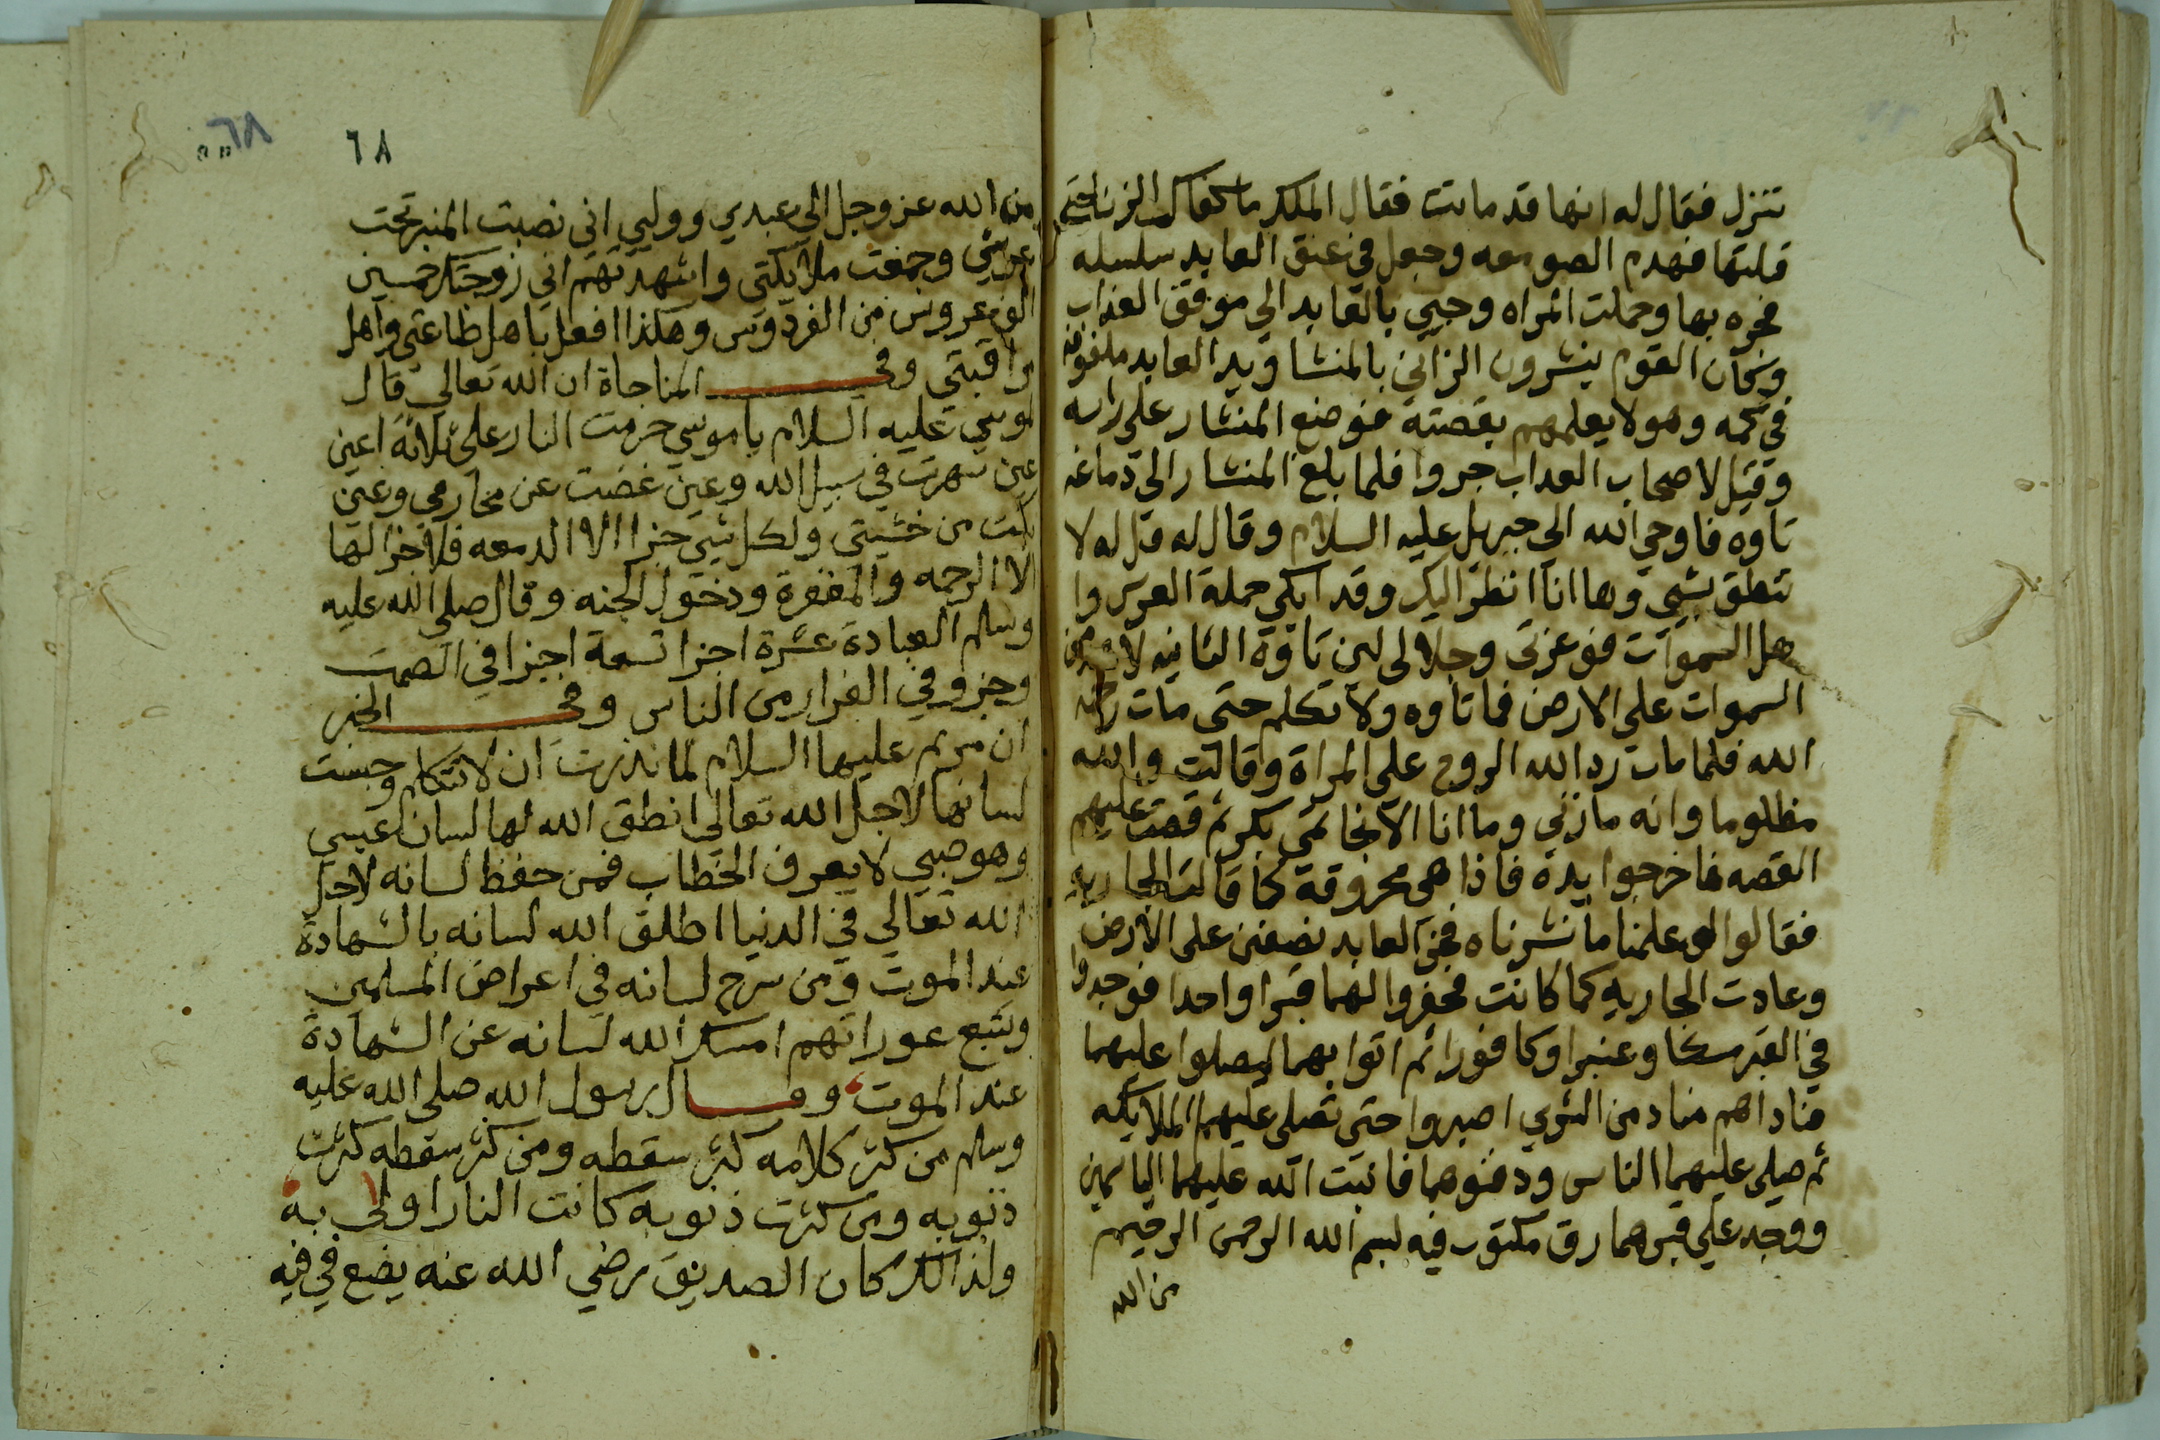 تنزل فقال له انها قد ماتت فقال الملك ما كفاك الزنا حتى
قتلتها فهدم الصومعه وجعل في عنق العابد سلسله
فجره بها وحملت المراه وجيي بالعابد الي موقف العذاب
وكان القوم ينشرون الزاني بالمنشا ويد العابد ملفوفه
في كمه وهو لا يعلمهم بقصته فوضع المنشار علي راسه
وقيل لاصحاب العداب جروا فلما بلغ المنشار الي دماغه
تاوه فاوحي الله الي جبريل عليه السلام وقال له قل له لا
تنطق بشيي وها انا انظر اليك وقد ابكي حملة العرش وا
هل السموات فوعزتي وجلالي لين تاوه الثانيه لا
السموات علي الارض فما تاوه ولا تكلم حتي مات رحمه
الله فلما مات رد الله الروح علي المراة وقالت والله
مظلوما وانه ما زني وما انا الا بخاتمي بكر ثم قصت عليهم
القصه فاخرجوا يده فاذا هي محروقة كما قالت الجاريه
فقالوا لو علمنا ما نشرناه فخر العابد نصفين علي الارض
وعادت الجاريه كما كانت فحفروا لهما قبرا واحدا فوجدوا
في القبر مسكا وعنبرا وكافورا ثم اتوا بهما ليصلوا عليهما
فناداهم مناد من اصبروا حتي تصلي عليهما الملايكه
ثم صلي عليهما الناس ودفنوهما فانبت الله عليهما الياسمين
ووجد علي قبرهما رق مكتوب فيه بسم الله الرحمن الرحيم
من الله
٦٨
٦٨
من الله عز وجل الي عبدي ووليي اني نصبت المنبر تحت
عرشي وجمعت ملايكتي واشهدتهم اني زوجتك خمسين
الف عروس من الفردوس وهكذا افعل باهل طاعتي واهل
مراقبتي وفي المناجاة ان الله تعالي قال
لموسي عليه السلام يا موسي حرمت النار علي ثلاثة اعين
عين سهرت في سبيل الله وعين غضت عن محارمي وعين
بكت من خشيتي ولكل شيي جزا الا الدمعه فلا جزا لها
الا الرحمه والمغفرة ودخول الجنه وقال صلي الله عليه
وسلم العبادة عشرة اجزا تسعة اجزا في الصمت
وجزو في الفرار من الناس وفي الخبر
ان مريم عليها السلام لما نذرت ان لا تتكلم وحبست
لسانها لاجل الله تعالي انطق الله لها لسان عيسي
وهو صبي لا يعرف الخطاب فمن حفظ لسانه لاجل
الله تعالي في الدنيا اطلق الله لسانه بالشهادة
عند الموت ومن سرح لسانه في اعراض المسلمين
وتتبع عوراتهم امسك الله لسانه عن الشهادة
عند الموت وقال رسول الله صلي الله عليه
وسلم من كثر كلامه كثر سقطه ومن كثر سقطه كثرت
ذنوبه ومن كثرت ذنوبه كانت النار اولي به
ولذالك كان الصديق رضي الله عنه يضع في فيه